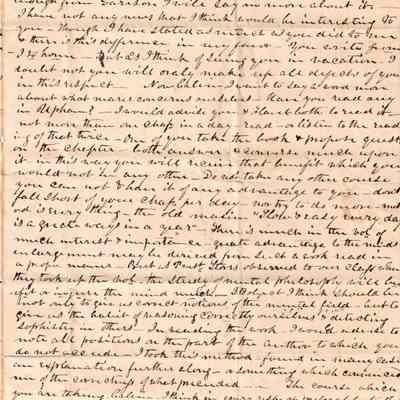 enough from I will say no more about it.
I have not any news that I think would be interesting to
you - though I have stated as much as you did to me
so there is this difference in my favor - You write from
I to home But as I think of seeing you in vacation I
doubt not you will orally make up all defects of yours
in this respect - Now Calvin I want to say a word more
about what more concerns intellect - Have you read any
in Upham? - I would advise you & Harriet both to read it
not more than one chap. in a day read or listen to the read
ing of that twice - One of you take the book & propose quest.
on the chapter both answer & converse much upon
it in this way you will receive that benefit which you
would not in any other. Do not take any other course
you can not & have it of any advantage to you - don't
fall short of your chap. per day nor try to do more - meth
od is every thing - the old maxim "Slow & easy every day
is a great ways in a year" There is much in the vol. of
much interest & importance - great advantage to the mind's
enlargement may be derived from such a book read in
a proper manner But as Prest. observed to our class when
they took up the vol. the study of mental philosophy will be
not only to give us correct notions of the mental field - but to
give us the habit of reasoning correctly ourselves & detecting
sophistry in others. In reading the work I would advise to
note all positions on the part of the author to which you
do not accede I took this method - found in many cases
an explanation further along - or something which convinced
me of the correctness of what preceded - The course which
you are taking Calvin I think in